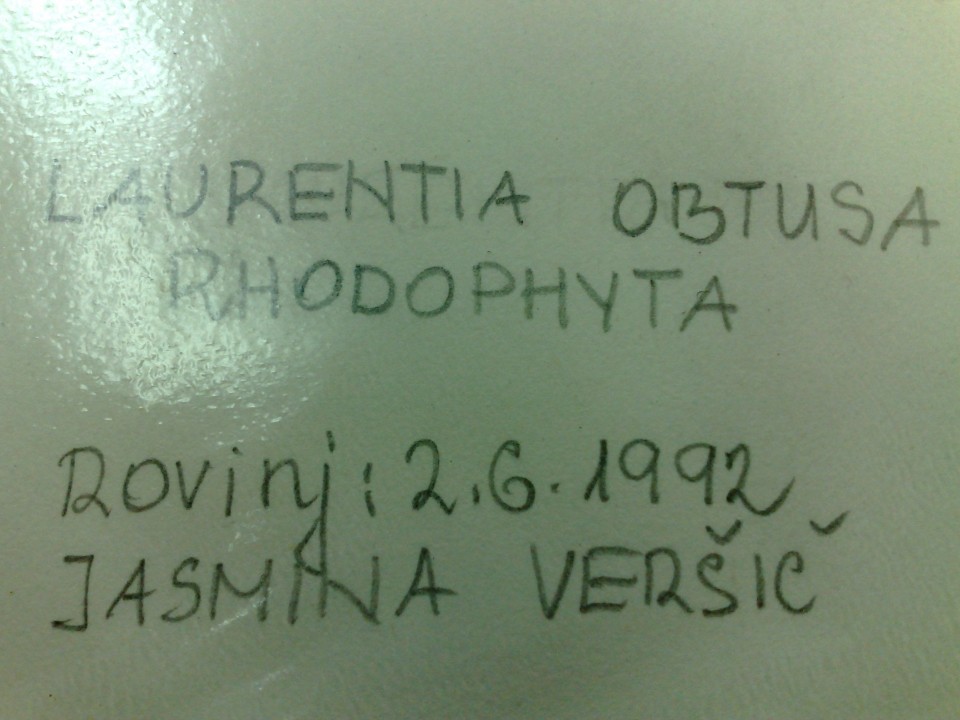 LAURENTIA OBTUSA
RHODOPHYTA
Rovinj: 2.6.1992
JASMINA VERŠIČ